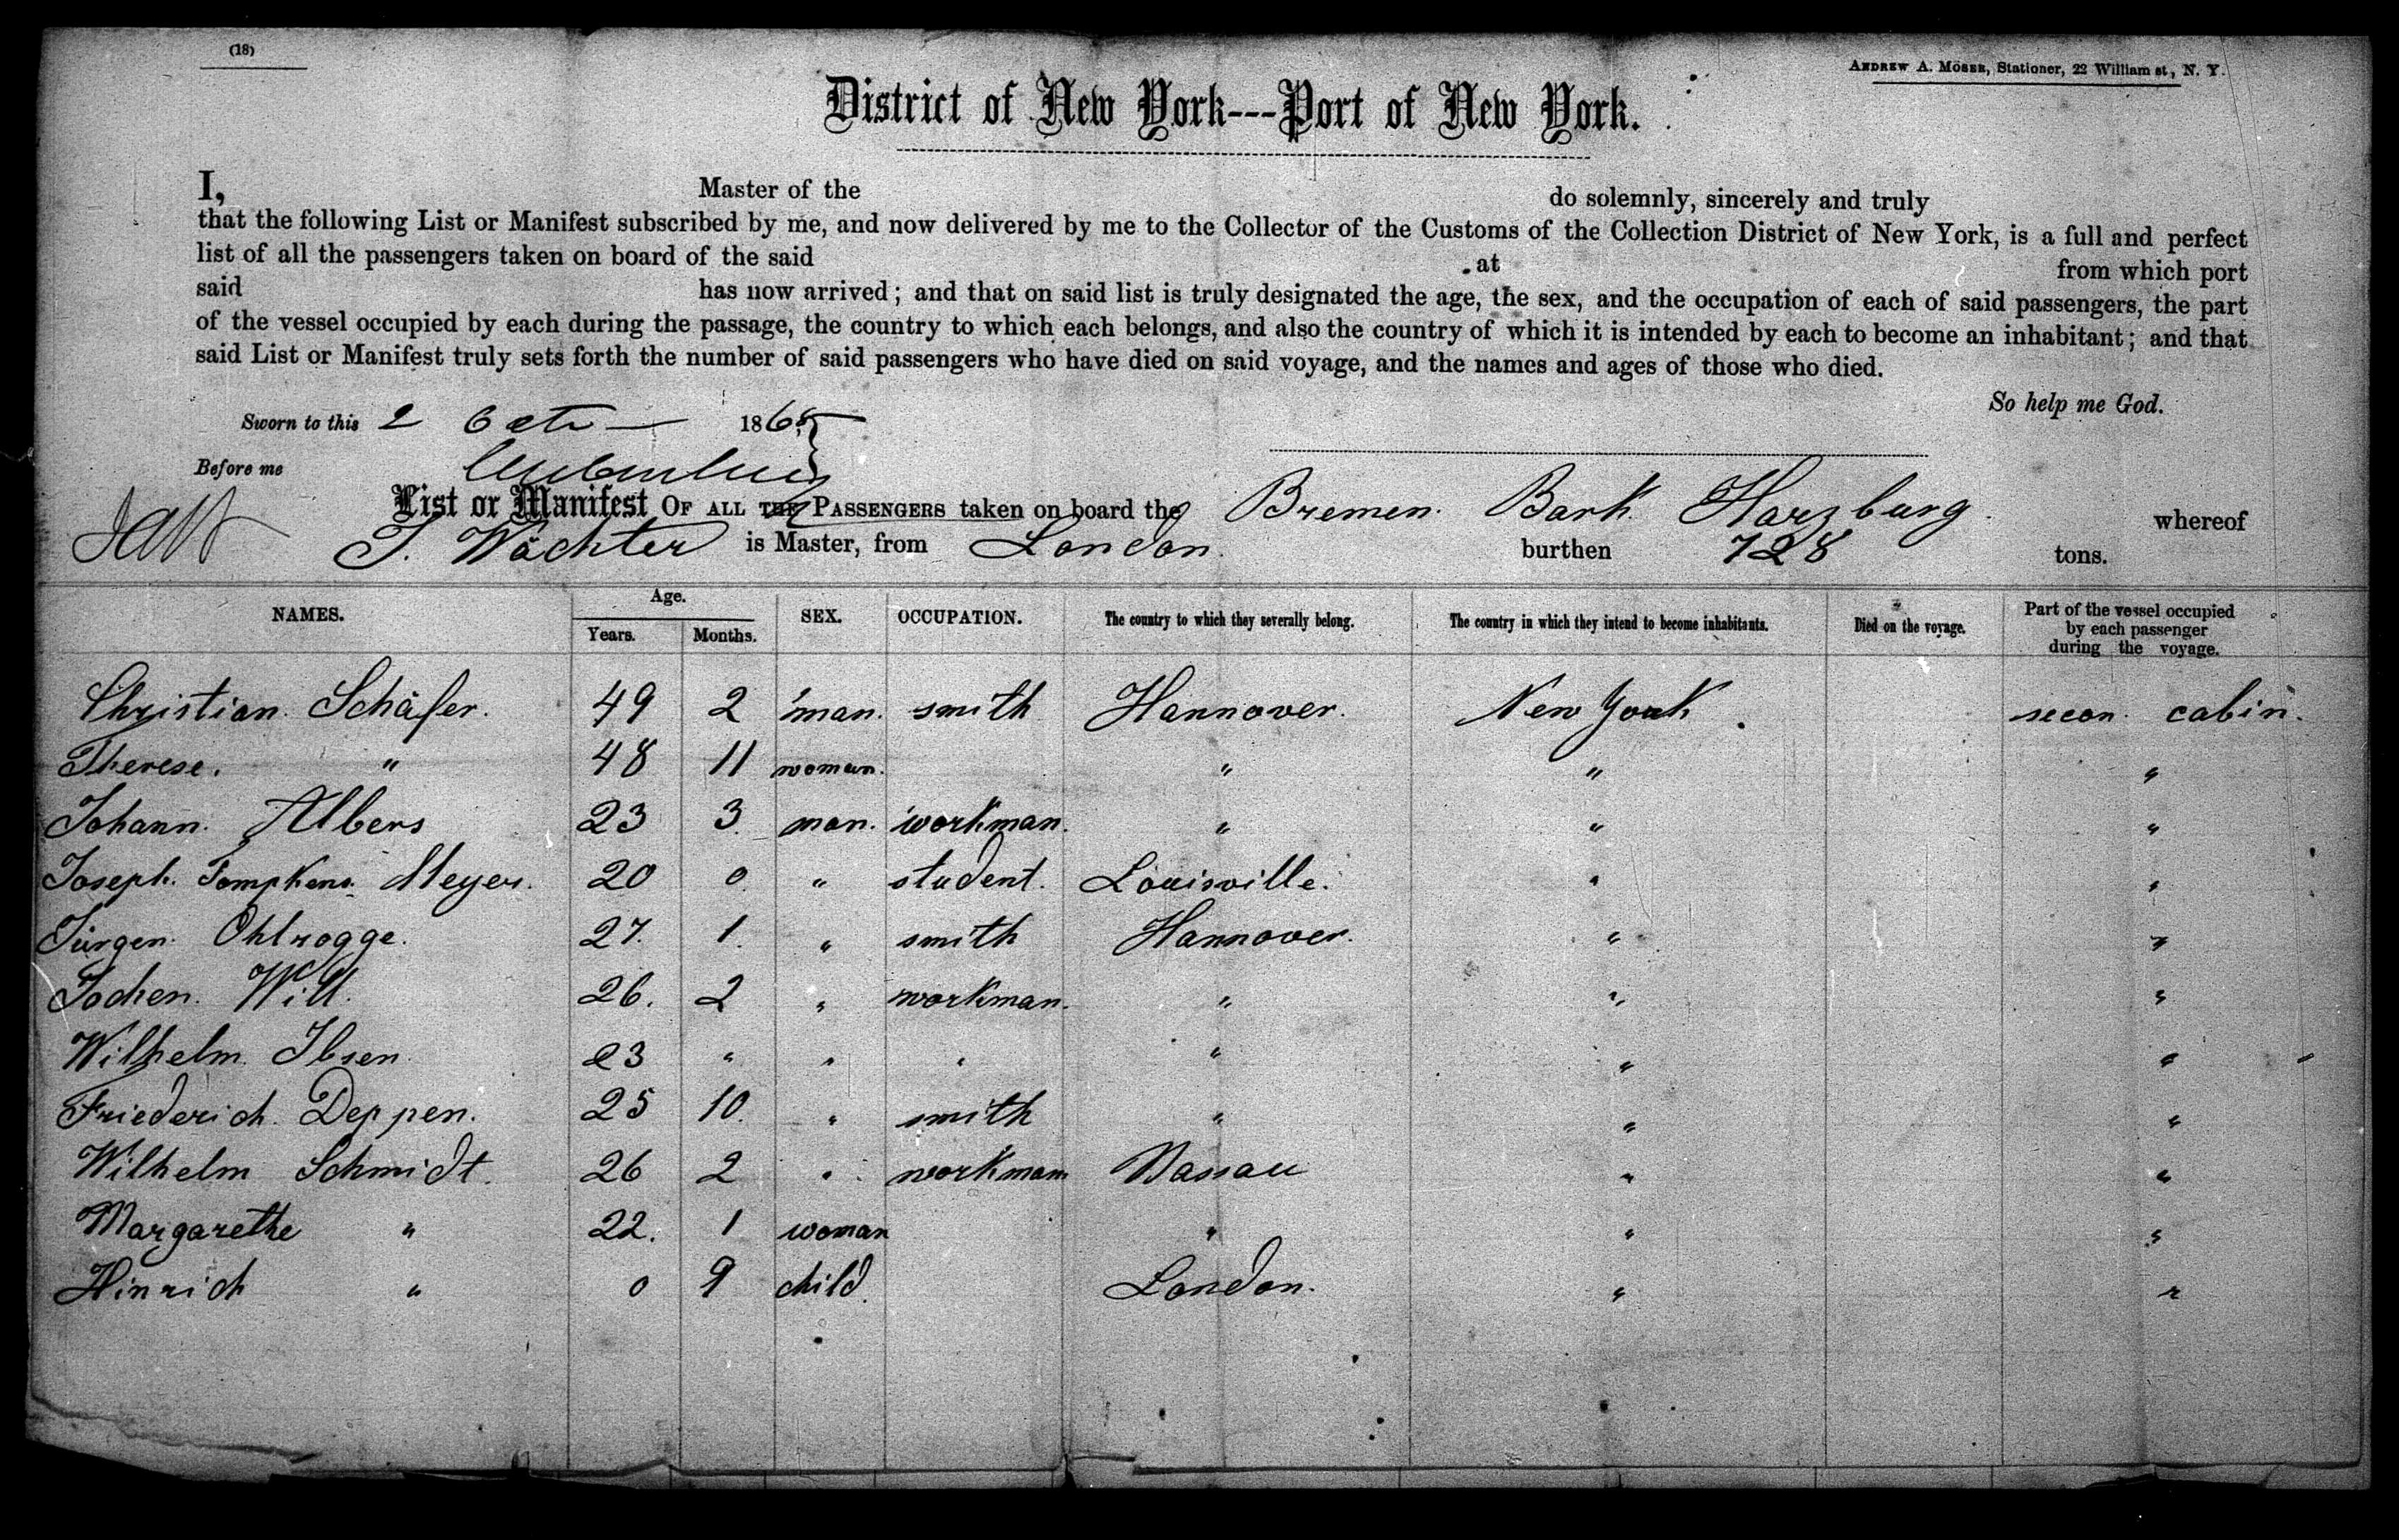 (18)
ANDREW A. MÖSER, Stationer, 22 William st, N. Y.
District of New York---Port of New York.
I, Master of the do solemnly, sincerely and truly
that the following List or Manifest subscribed by me, and now delivered by me to the Collector of the Customs of the Collection District of New York, is a full and perfect
list of all the passengers taken on board of the said at from which port
said has now arrived; and that on said list is truly designated the age, the sex, and the occupation of each of said passengers, the part
of the vessel occupied by each during the passage, the country to which each belongs, and also the country of which it is intended by each to become an inhabitant; and that
said List or Manifest truly sets forth the number of said passengers who have died on said voyage, and the names and ages of those who died.
So help me God.
Sworn to this 2 Octr 1868
Before me
List or Manifest OF ALL THE PASSENGERS taken on board the Bremen Bark Harzburg. whereof
J. Wächter is Master, from London. burthen 728 tons.
NAMES. Age. Years. Months. SEX. OCCUPATION. The country to which they severally belong. The country in which they intend to become inhabitants. Died on the voyage. Part of the vessel occupied by each passenger during the voyage.
Christian Schäfer. 49 2 man. smith Hannover. New York. secon. cabin.
Therese. " 48 11 woman. " " "
Johann. Albers 23 3. man. workman. " " "
Joseph. Tompkens. Meyer. 20 0 " student. Louisville. " "
Jürgen. Ohlrogge. 27. 1. " smith Hannover. " "
Jochen. Will. 26. 2 " workman. " " "
Wilhelm. Ibsen 23 " " " " " "
Friederich. Deppen. 25 10. " smith " " "
Wilhelm Schmidt. 26 2 " workman Nassau " "
Margarethe " 22. 1 woman " " "
Hinrich " 0 9 child. London. " "